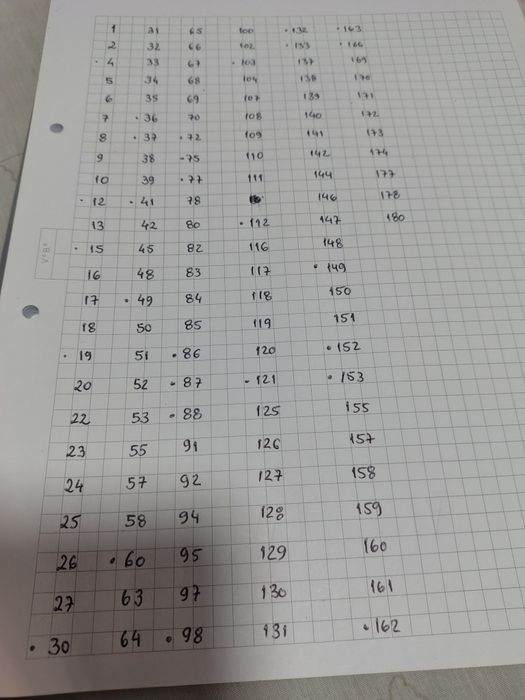 1 31 65 100 • 132 • 163
2 32 66 102 • 133 • 166
• 4 33 67 • 103 137 169
5 34 68 104 138 170
6 35 69 107 139 171
7 • 36 70 108 140 172
8 • 37 • 72 109 141 173
9 38 • 75 110 142 174
10 39 • 77 111 144 177
• 12 • 41 78 146 178
13 42 80 • 112 147 180
• 15 45 82 116 148
16 48 83 117 • 149
17 • 49 84 118 150
18 50 85 119 151
• 19 51 • 86 120 • 152
20 52 • 87 • 121 • 153
22 53 • 88 125 155
23 55 91 126 157
24 57 92 127 158
25 58 94 128 159
26 • 60 95 129 160
27 63 97 130 161
• 30 64 • 98 131 • 162